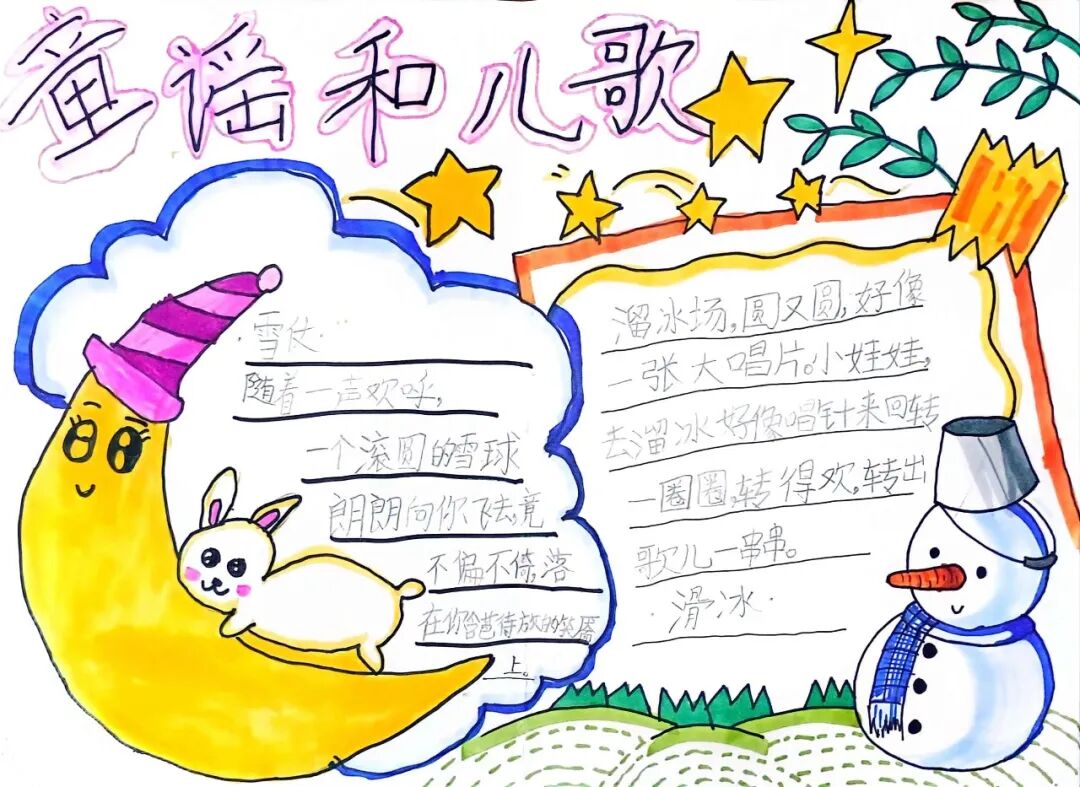 童谣和儿歌
·雪仗·
随着一声欢呼,
一个滚圆的雪球
朗朗向你飞去,竟
不偏不倚,落
在你含苞待放的笑靥
上。
溜冰场,圆又圆,好像
一张大唱片。小娃娃,
去溜冰好像唱针来回转
一圈圈,转得欢,转出
歌儿一串串。
·滑冰·